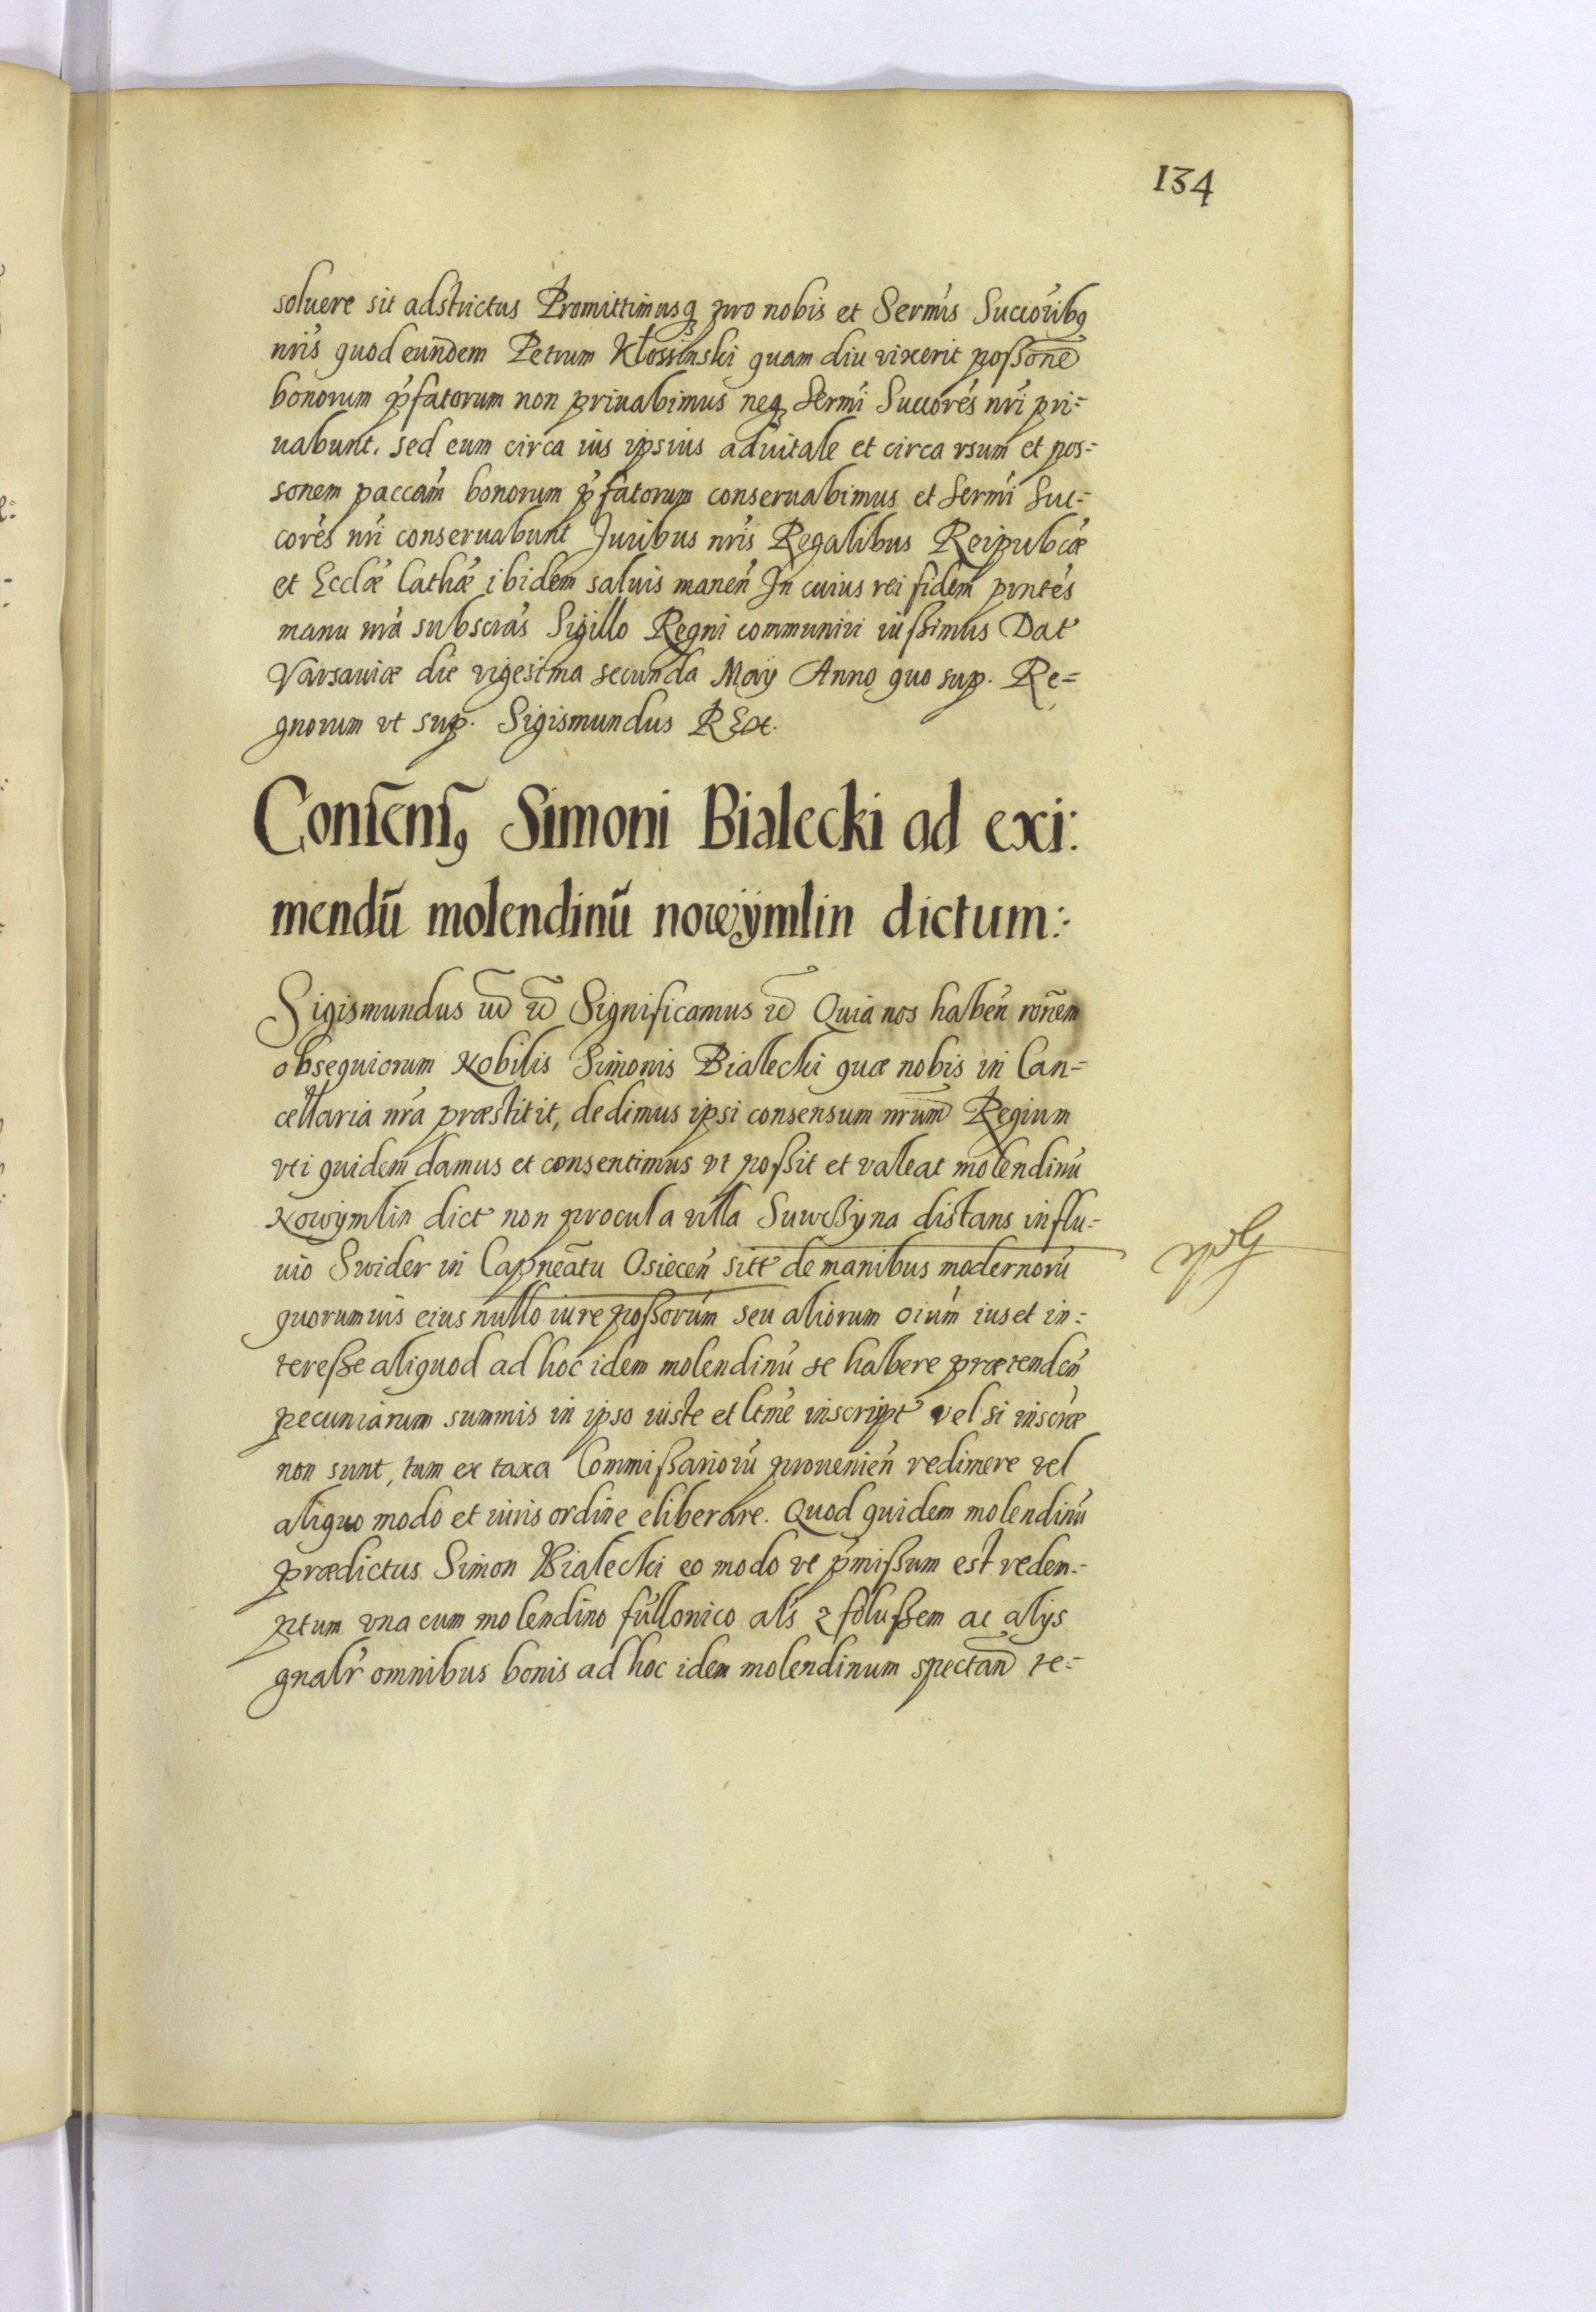 134
soluere sit adstrictus Promittimusq₃ pro nobis et Sermis Succoribq
nris quod eundem Petrum Kłossinski quam diu vixerit poßone
bonorum pfatorum non priuabimus neq₃ Sermi Succores nri pri=
uabunt, sed eum circa ius ipsius aduitale et circa vsum et pos=
sonem paccam bonorum pfatorum conseruabimus et Sermi Suc=
cores nri conseruabunt Juribus nris Regalibus Reipubcæ
et Ecclæ Cathæ ibidem saluis manen In cuius rei fidem pntes
manu nra subscras Sigillo Regni communiri iußimus Dat
Varsauiæ die vigesima secunda Maÿ Anno quo sup. Re=
gnorum vt sup. Sigismundus REx.
Consens9 Simoni Bialecki ad exi:
mendū molendinū nowÿmlin dictum:
Sigismundus Significamus Quia nos haben ronem
obsequiorum Nobilis Simonis Bialecki quæ nobis in Can=
cellaria nra præstitit, dedimus ipsi consensum nrum Regium
vti quidem damus et consentimus vt poßit et valeat molendinū
Nowÿmlin dict non procul a villa Suwßÿna distans in flu=
uio Swider in Capneatu Osiecen sitt de manibus modernorū
quorumuis eius nullo iure poßorum seu aliorum oium ius et in=
tereße aliquod ad hoc idem molendinū se habere prætenden
pecuniarum summis in ipso iuste et ltme inscript vel si inscræ
non sunt, tum ex taxa Commißariorū prouenien redimere vel
aliquo modo et iuris ordine eliberare. Quod quidem molendinū
prædictus Simon Bialecki eo modo vt pmißum est redem=
ptum vna cum molendino fullonico als z folußem ac alÿs
gnalr omnibus bonis ad hoc idem molendinum spectan te=